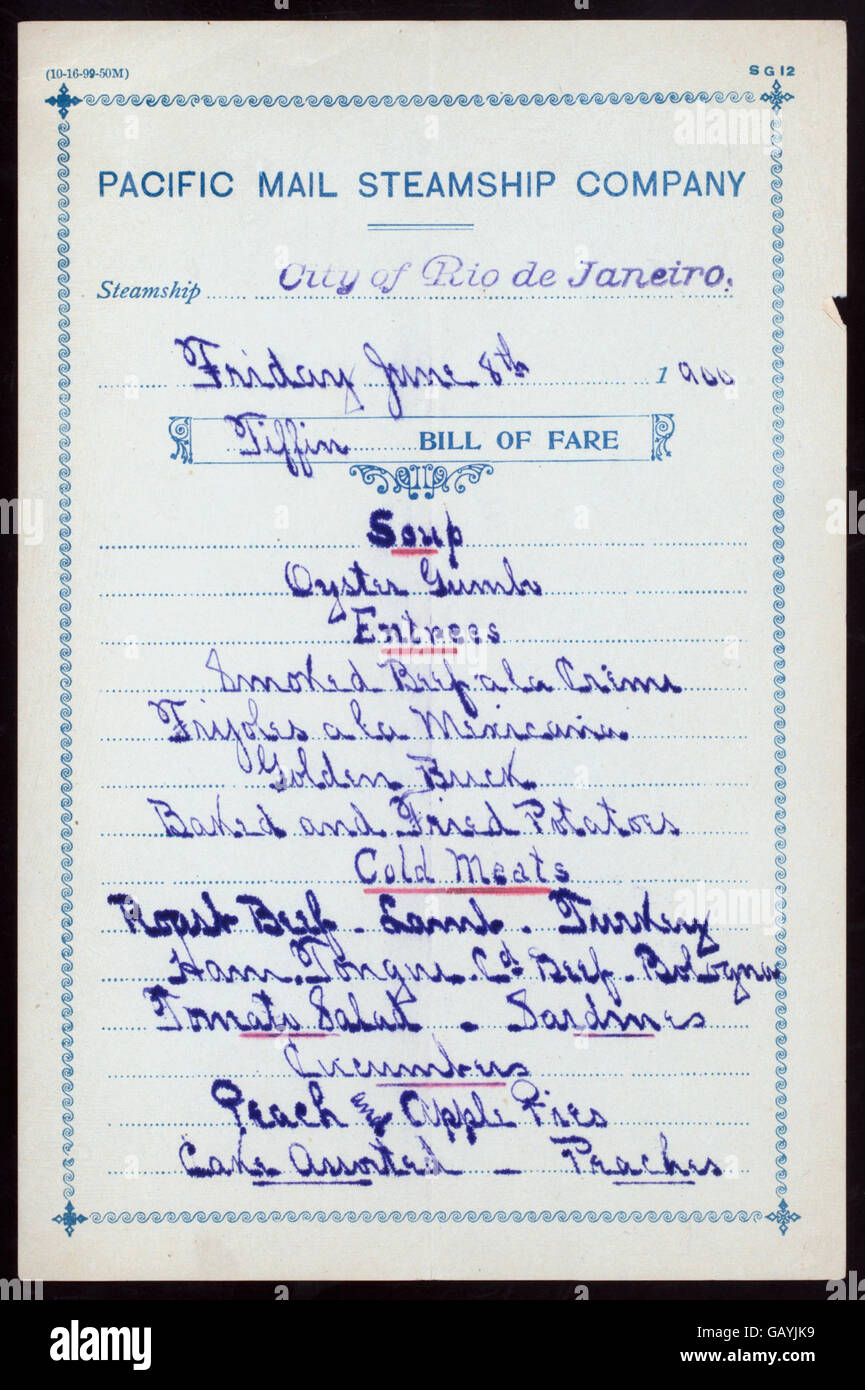 (10-16-99-50M)
SG12
PACIFIC MAIL STEAMSHIP COMPANY
Steamship City of Rio de Janeiro.
Friday June 8th 1900
Tiffin BILL OF FARE
Soup
Oyster Gumbo
Entrees
Smoked Beef a la Crème
Frijoles a la Mexicana
Golden Buck
Baked and Fried Potatoes
Cold Meats
Roast Beef - Lamb - Turkey
Ham. Tongue. Cd Beef - Bologna
Tomato Salad - Sardines
Cucumbers
Peach and Apple Pies
Cake Assorted - Peaches
alamy
Image ID: GAYJK9
www.alamy.com